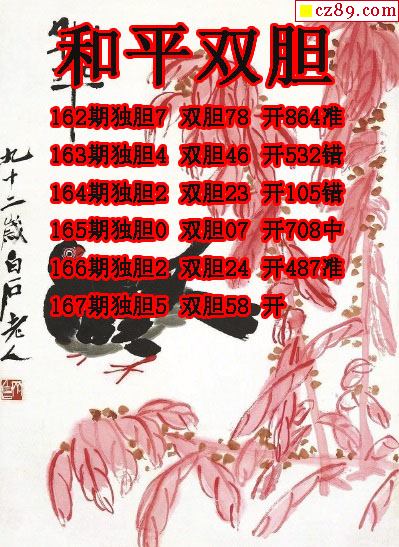 cz89.com
和平双胆
162期独胆7 双胆78 开864准
163期独胆4 双胆46 开532错
164期独胆2 双胆23 开105错
165期独胆0 双胆07 开708中
166期独胆2 双胆24 开487准
167期独胆5 双胆58 开
九十二岁白石老人